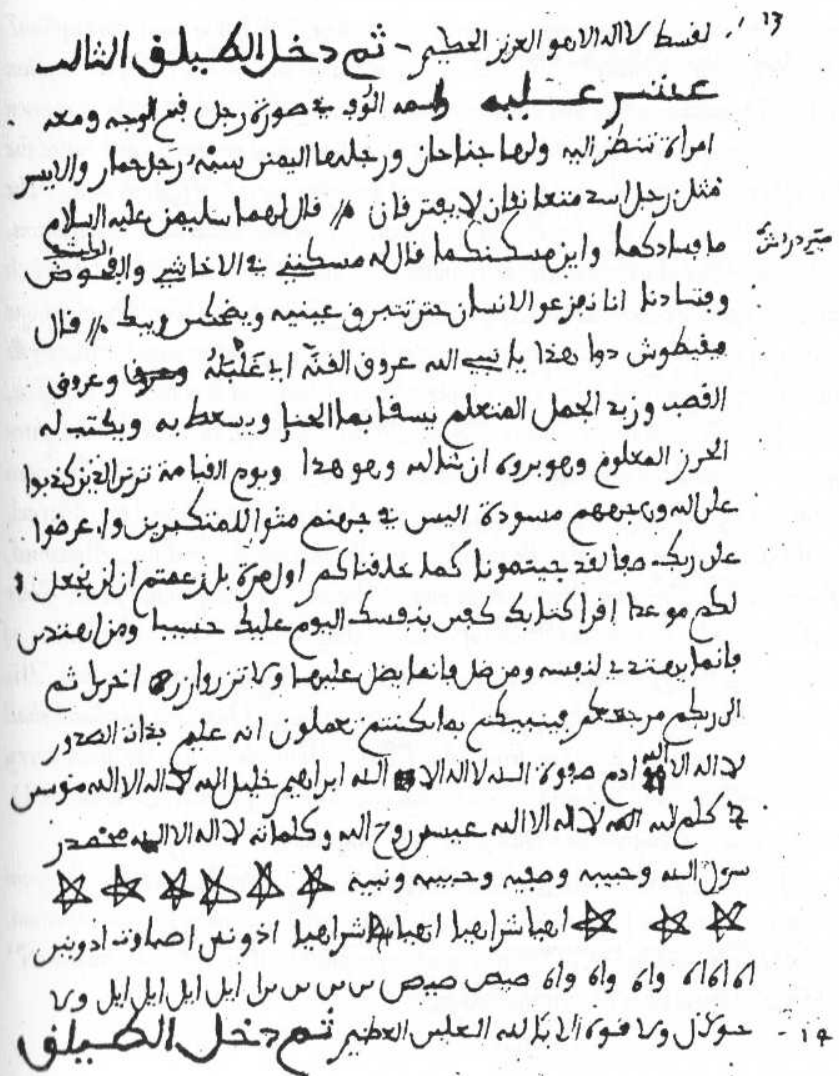 ١٣
لفسط لا اله الا هو العزيز العظيم - ثم دخل الطيلف الثالث
عشر عليه واسمه الوف في صورة رجل قبيح الوجه ومعه
امراة تنظر اليه ولها جناحان ورجلها اليمنى سبه رجل حمار والايسر
مثل رجل اسد متعانقان لا يفترقان // قال لهما سليمن عليه السلام
ما فسادكما واين مسكنكما قال له مسكني في الاخاشي والفحوض
وفسادنا انا نفزعو الانسان حتى تبرق عينيه ويضحك ويبط // قال
مفيطوش دوا هذا يا نبي الله عروق الفنة اي غلبله وعروق
القصب وزبد الجمل المتعلم يسفا بما الحنا ويسعط به ويكتب له
الحرز المعلوم وهو بروه ان شا الله وهو هذا ويوم القيامة ترى الذين كذبوا
على الله وجههم مسودة اليس في جهنم مثوا للمتكبرين واعرضوا
على ربك صفا لقد جيتمونا كما خلقناكم اول مرة بل زعمتم ان لن نجعل
لكم موعدا اقرا كتابك كفى بنفسك اليوم عليك حسيبا ومن اهتدى
فانما يهتدي لنفسه ومن ضل فانما يضل عليها ولا تزر وازرة اخرى ثم
الى ربكم مرجعكم فينبيكم بما كنتم تعملون انه عليم بذات الصدور
لا اله الا الله ادم صفوة الله لا اله الا الله ابراهيم خليل الله لا اله الا الله موسى
كلم الله لا اله الا الله عيسى روح الله وكلماته لا اله الا الله محمد ر
سول الله وحبيبه وصفيه وحبيبه ونبيه
اهيا شراهيا اهيا شراهيا ادوني اصباوت ادوني
اه اه اه واه واه واه صيص صيص س س س ايل ايل ايل ايل ايل ولا
حول ولا قوة الا بالله العلي العظيم ثم دخل الطيلف
١٤ -